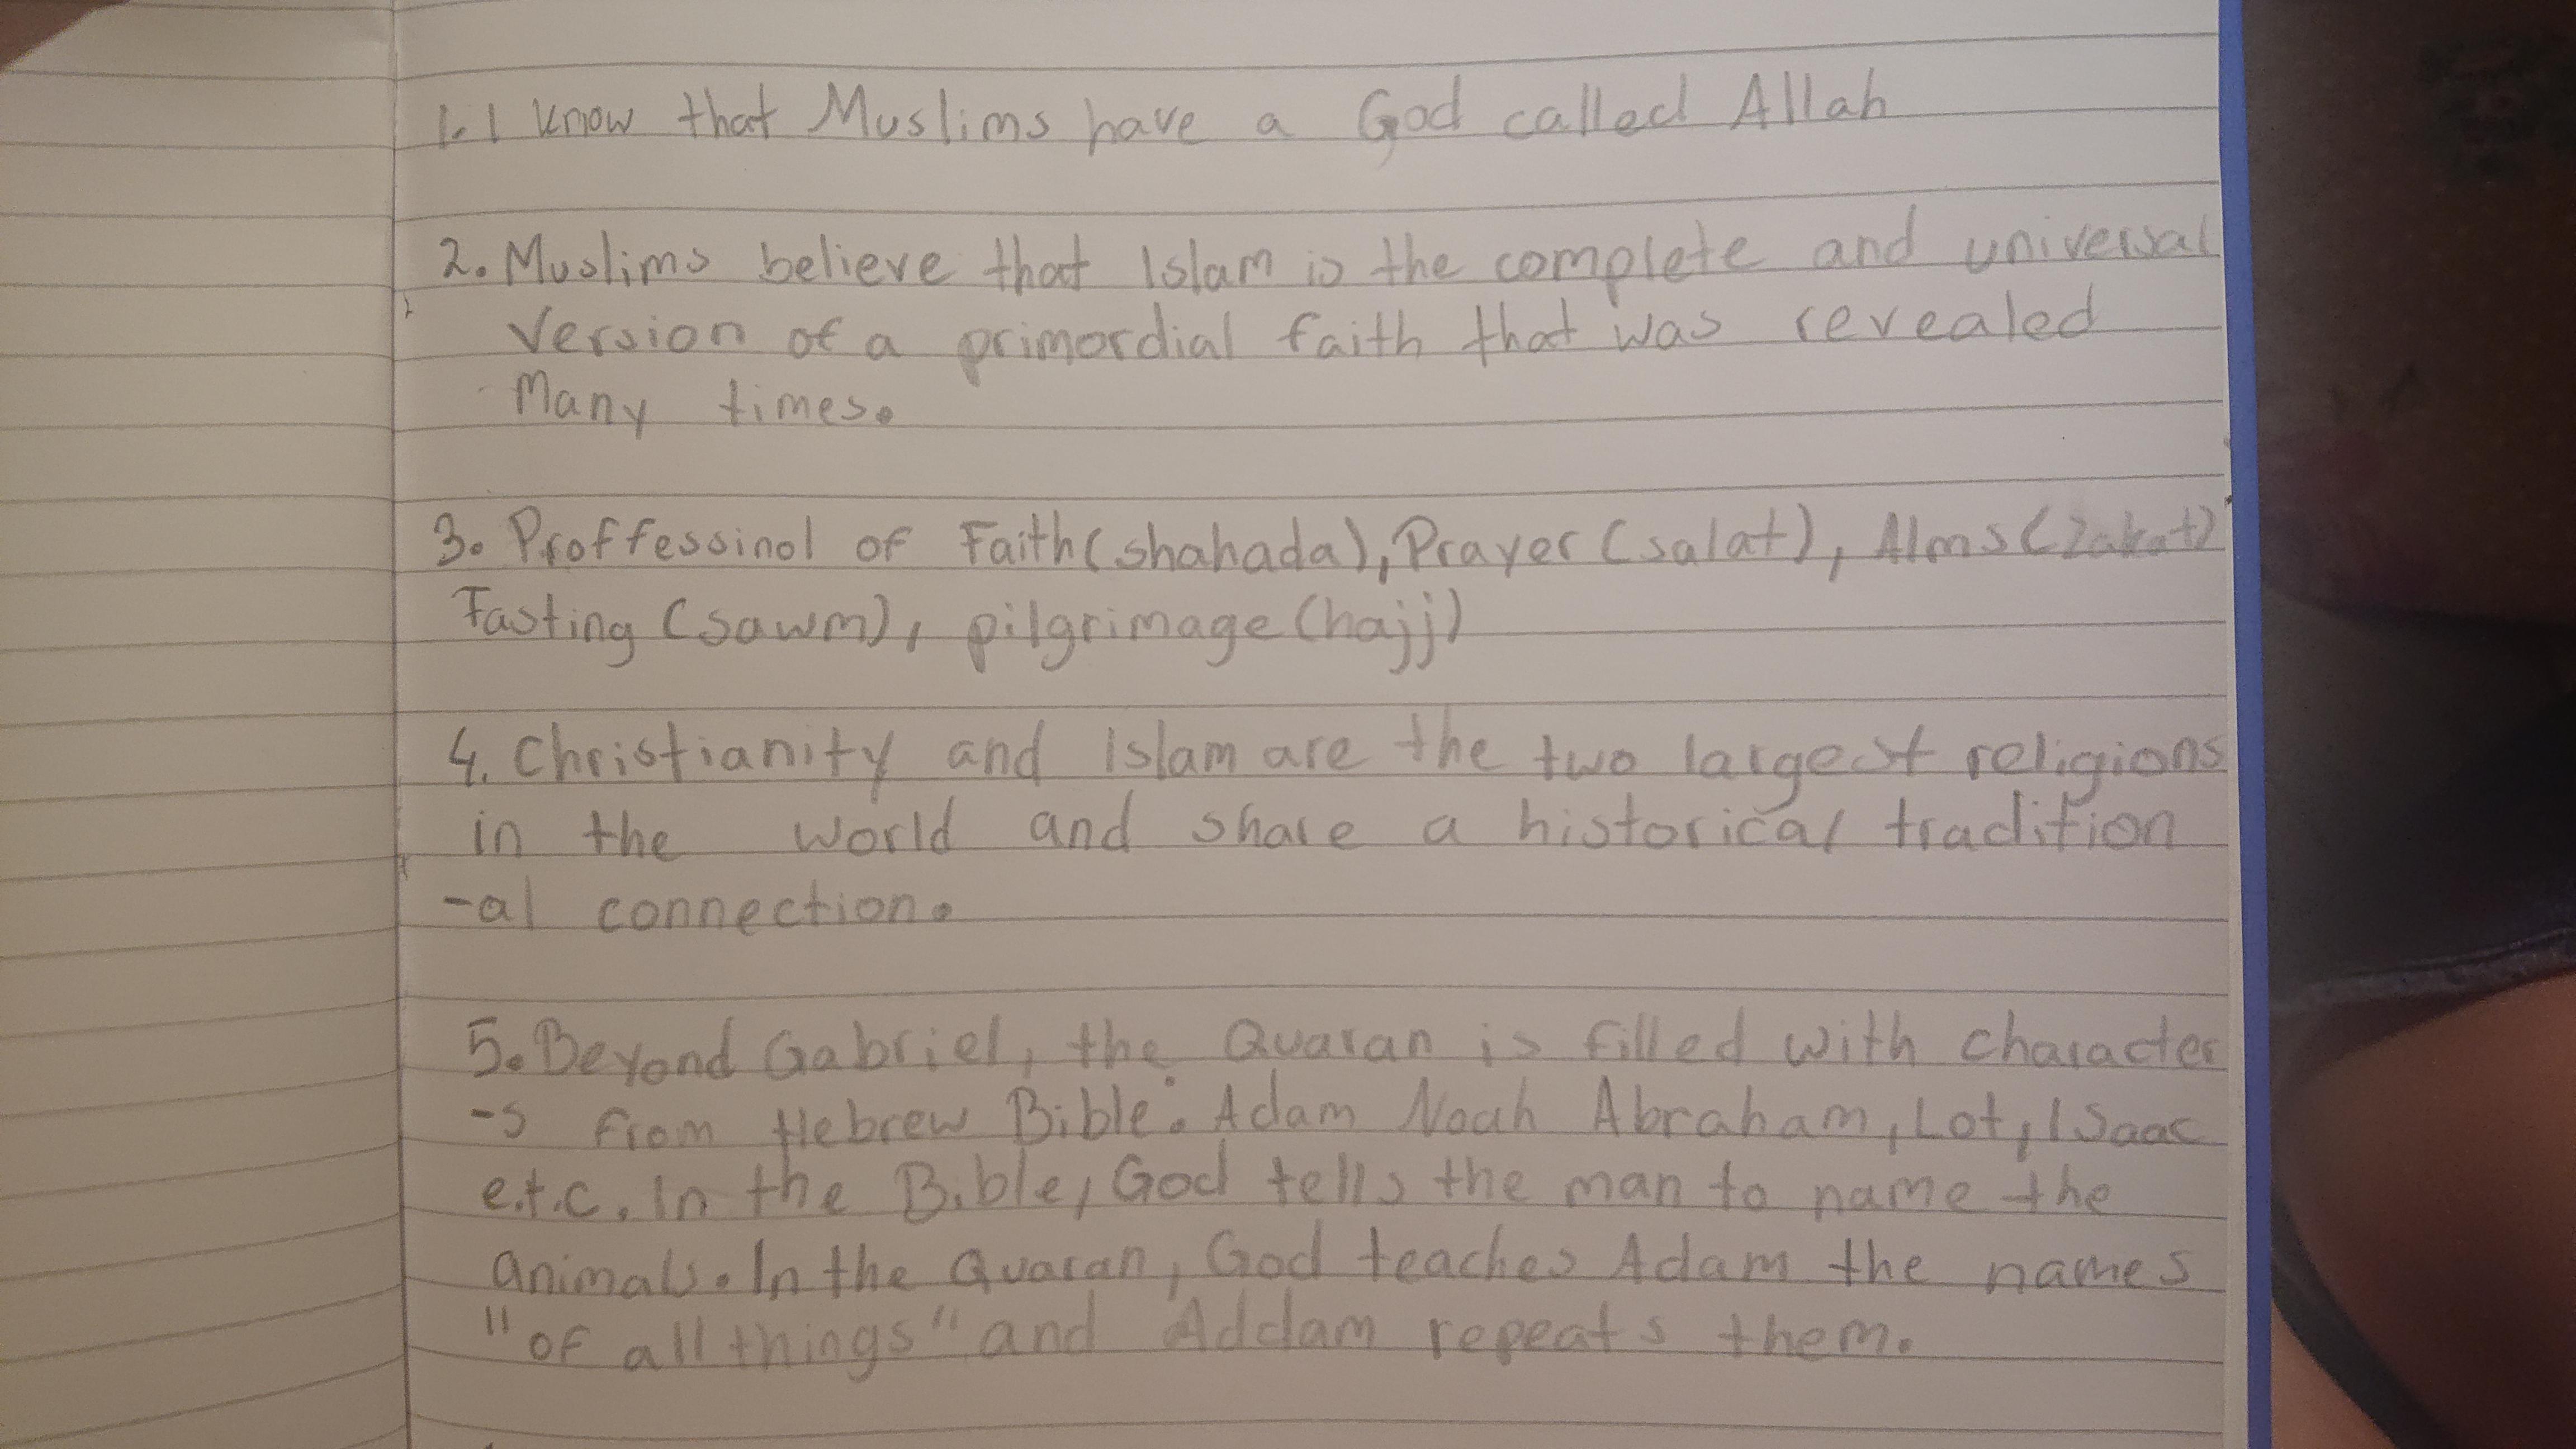 1. I know that Muslims have a God called Allah
2. Muslims believe that Islam is the complete and universal
version of a primordial faith that was revealed
Many times.
3. Proffessinol of Faith(shahada), Prayer (salat), Alms (Zakat)
Fasting (sawm), pilgrimage (hajj)
4. Christianity and Islam are the two largest religions
in the world and share a historical tradition
-al connection.
5. Beyond Gabriel, the Quaran is filled with character
-s from Hebrew Bible: Adam Noah Abraham, Lot, Isaac
e.t.c. In the Bible, God tells the man to name the
animals. In the Quaran, God teaches Adam the names
"of all things" and Addam repeats them.